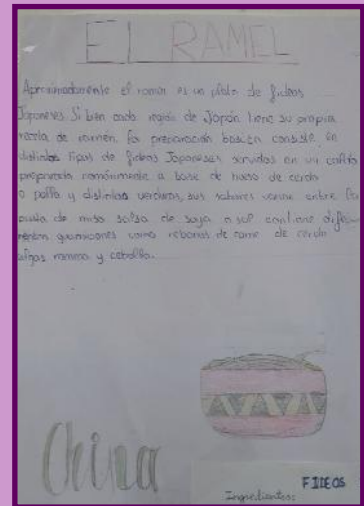 EL RAMEL
Aproximadamente el ramen es un plato de fideos
Japoneses. Si bien cada región de Japón tiene su propia
receta de ramen, la preparación consiste en
distintos tipos de fideos Japoneses servidos en un caldo
preparado a base de hueso de cerdo
o pollo y distintas verduras, sus sabores varían entre la
pasta de miso salsa de soya o sal contiene
guarniciones como rebanas de carne de cerdo
algas y cebolla.
China
FIDEOS
Ingredientes: